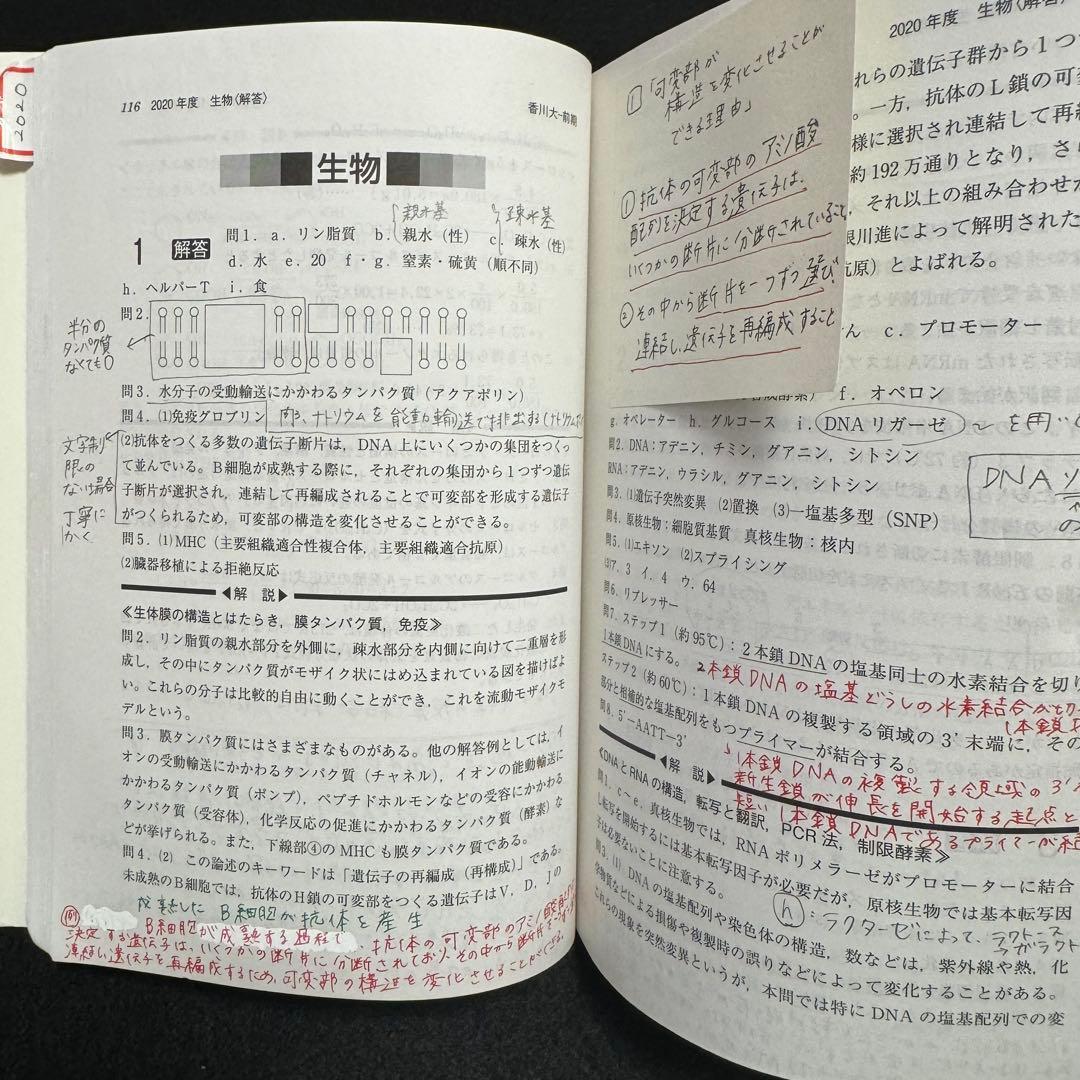 2020
116 2020年度 生物〈解答〉
香川大-前期
生物
親水基
疎水基
1 解答 問1. a. リン脂質 b. 親水(性) c. 疎水(性)
d. 水 e. 20 f・g. 窒素・硫黄(順不同)
h. ヘルパーT i. 食
問2.
半分の
タンパク質
なくても○
問3. 水分子の受動輸送にかかわるタンパク質(アクアポリン)
問4. (1)免疫グロブリン
問3、ナトリウムを能動輸送で排出する(ナトリウム
文字制
限の
ない場合
丁寧に
かく
(2)抗体をつくる多数の遺伝子断片は,DNA上にいくつかの集団をつくっ
て並んでいる。B細胞が成熟する際に,それぞれの集団から1つずつ遺伝
子断片が選択され,連結して再編成されることで可変部を形成する遺伝子
がつくられるため,可変部の構造を変化させることができる。
問5. (1)MHC(主要組織適合性複合体,主要組織適合抗原)
(2)臓器移植による拒絶反応
◀解説▶
≪生体膜の構造とはたらき,膜タンパク質,免疫≫
問2. リン脂質の親水部分を外側に,疎水部分を内側に向けて二重層を形
成し,その中にタンパク質がモザイク状にはめ込まれている図を描けばよ
い。これらの分子は比較的自由に動くことができ,これを流動モザイクモ
デルという。
問3. 膜タンパク質にはさまざまなものがある。他の解答例としては,イ
オンの受動輸送にかかわるタンパク質(チャネル),イオンの能動輸送に
かかわるタンパク質(ポンプ),ペプチドホルモンなどの受容にかかわる
タンパク質(受容体),化学反応の促進にかかわるタンパク質(酵素)な
どが挙げられる。また,下線部④のMHCも膜タンパク質である。
問4. (2) この論述のキーワードは「遺伝子の再編成(再構成)」である。
未成熟のB細胞では,抗体のH鎖の可変部をつくる遺伝子はV,D,Jの
成熟したB細胞が抗体を産生
(例) B細胞が成熟する過程で、抗体の可変部のアミノ酸配列を
決定する遺伝子は、いくつかの断片に分断されており、その中から断片を
連結し、遺伝子を再編成するため、可変部の構造を変化させることができる。
1 「可変部が
構造を変化させることが
できる理由」
① 抗体の可変部のアミノ酸
配列を決定する遺伝子は、
いくつかの断片に分断されていること
② その中から断片を一つずつ選び、
連結し、遺伝子を再編成すること
2020年度 生物〈解答〉
れらの遺伝子群から1つず
。一方,抗体のL鎖の可変
様に選択され連結して再編
約192万通りとなり,さら
,それ以上の組み合わせが
根川進によって解明された
抗原)とよばれる。
ん c. プロモーター
f. オペロン
g. オペレーター h. グルコース i. DNAリガーゼ
〜を用い
問2. DNA:アデニン,チミン,グアニン,シトシン
RNA:アデニン,ウラシル,グアニン,シトシン
DNA
問3. (1)遺伝子突然変異 (2)置換 (3)一塩基多型(SNP)
問4. 原核生物:細胞質基質 真核生物:核内
問5. (1)エキソン (2)スプライシング
(3)ア. 3 イ. 4 ウ. 64
問6. リプレッサー
問7. ステップ1(約95℃):2本鎖DNAの塩基同士の水素結合を切り
1本鎖DNAにする。
2本鎖DNAの塩基どうしの水素結合が切
1本鎖
ステップ2(約60℃):1本鎖DNAの複製する領域の3'末端に,その
部分と相補的な塩基配列をもつプライマーが結合する。
問8. 5'―AATT―3'
1本鎖DNAの複製する領域の3'
新生鎖が伸長を開始する起点と
短い1本鎖DNAであるプライマーが結
◀解説▶
≪DNAとRNAの構造,転写と翻訳,PCR法,制限酵素≫
問1. c~e. 真核生物では,RNAポリメラーゼがプロモーターに結合
し転写を開始するには基本転写因子が必要だが,原核生物では基本転写因
子は必要ないことに注意する。
(h):ラクターゼによって、ラクトース
問3. (1) DNAの塩基配列や染色体の構造,数などは,紫外線や熱,化
学物質などによる損傷や複製時の誤りなどによって変化することがある。
これらの現象を突然変異というが,本問では特にDNAの塩基配列での変